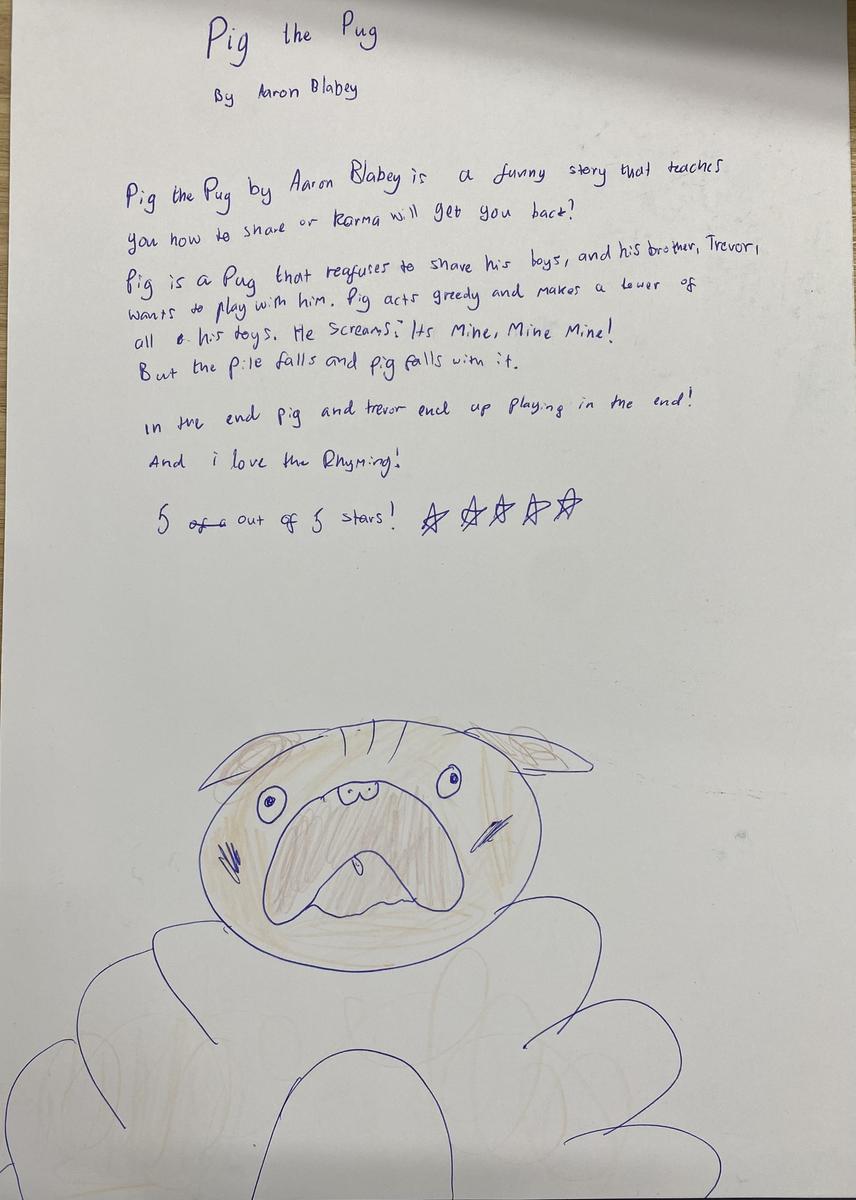 Pig the Pug
By Aaron Blabey
Pig the Pug by Aaron Blabey is a funny story that teaches
you how to share or karma will get you back?
Pig is a Pug that reafuses to share his boys, and his brother, Trevor,
wants to play with him. Pig acts greedy and makes a tower of
all his toys. He screams: Its Mine, Mine Mine!
But the pile falls and pig falls with it.
in the end pig and trevor end up playing in the end!
And i love the Rhyming!
5 out of 5 stars! ☆ ☆ ☆ ☆ ☆